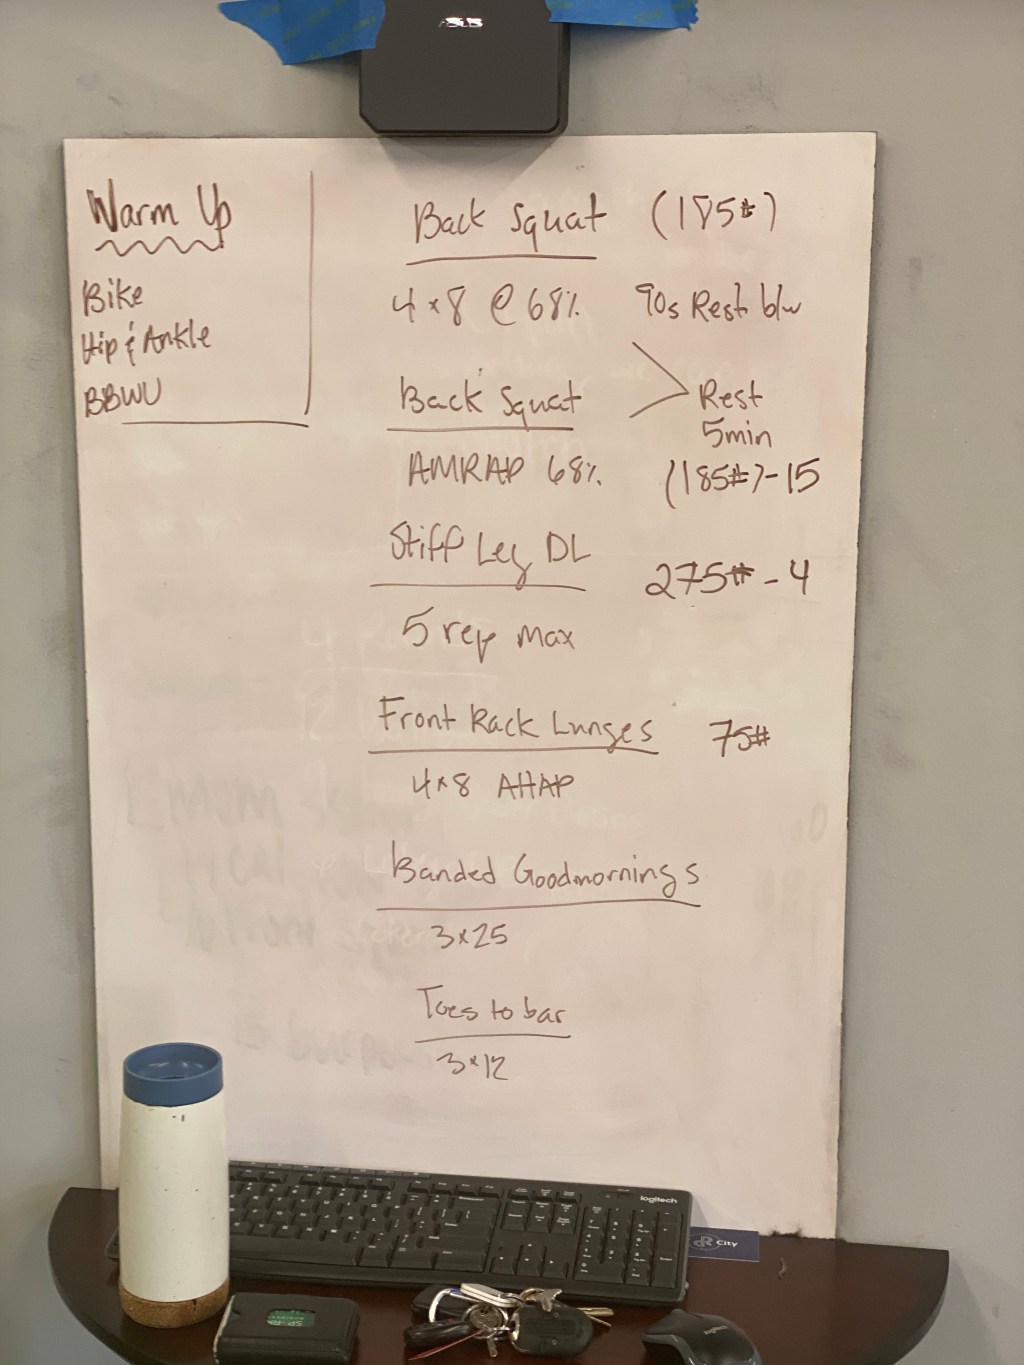 ASUS
Warm Up
Bike
Hip & Ankle
BBWU
Back Squat (185#)
4x8 @ 68% 90s Rest b/w
Back Squat
Rest
5min
AMRAP 68% (185#)-15
Stiff Leg DL
275# - 4
5 rep max
Front Rack Lunges 75#
4x8 AHAP
Banded Goodmornings
3x25
Toes to bar
3x12
logitech
City
logitech